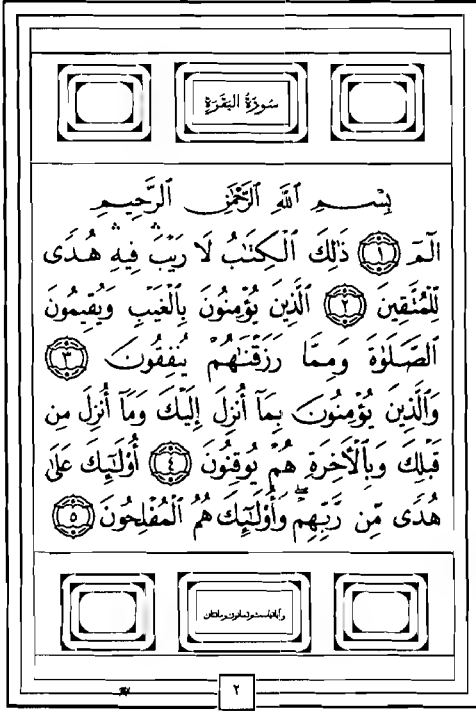 سُورَةُ البَقَرَةِ
بِسْمِ ٱللَّهِ ٱلرَّحْمَٰنِ ٱلرَّحِيمِ
الٓمٓ ١ ذَٰلِكَ ٱلْكِتَٰبُ لَا رَيْبَ ۛ فِيهِ ۛ هُدًى
لِّلْمُتَّقِينَ ٢ ٱلَّذِينَ يُؤْمِنُونَ بِٱلْغَيْبِ وَيُقِيمُونَ
ٱلصَّلَوٰةَ وَمِمَّا رَزَقْنَٰهُمْ يُنفِقُونَ ٣
وَٱلَّذِينَ يُؤْمِنُونَ بِمَآ أُنزِلَ إِلَيْكَ وَمَآ أُنزِلَ مِن
قَبْلِكَ وَبِٱلْءَاخِرَةِ هُمْ يُوقِنُونَ ٤ أُو۟لَٰٓئِكَ عَلَىٰ
هُدًى مِّن رَّبِّهِمْ ۖ وَأُو۟لَٰٓئِكَ هُمُ ٱلْمُفْلِحُونَ ٥
وآياتها ست وثمانون ومائتان
٢